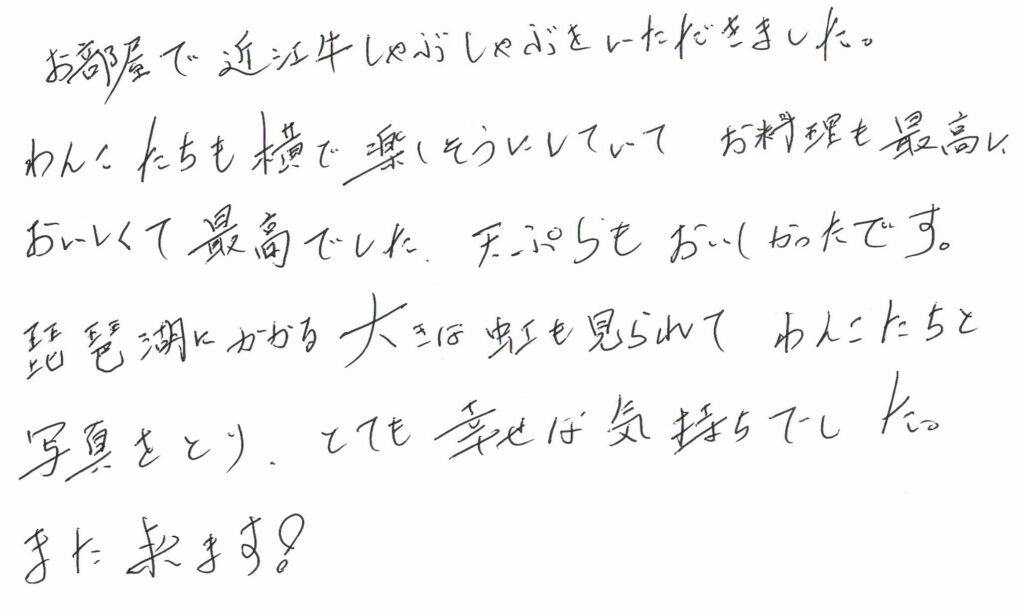 お部屋で近江牛しゃぶしゃぶをいただきました。
わんこたちも横で楽しそうにしていて お料理も最高に
おいしくて最高でした。天ぷらもおいしかったです。
琵琶湖にかかる大きな虹も見られて わんこたちと
写真をとり、とても幸せな気持ちでした。
また来ます!